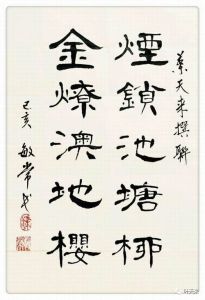 葉天来撰聯
煙鎖池塘柳
金燎澳地櫻
己亥 敏常书